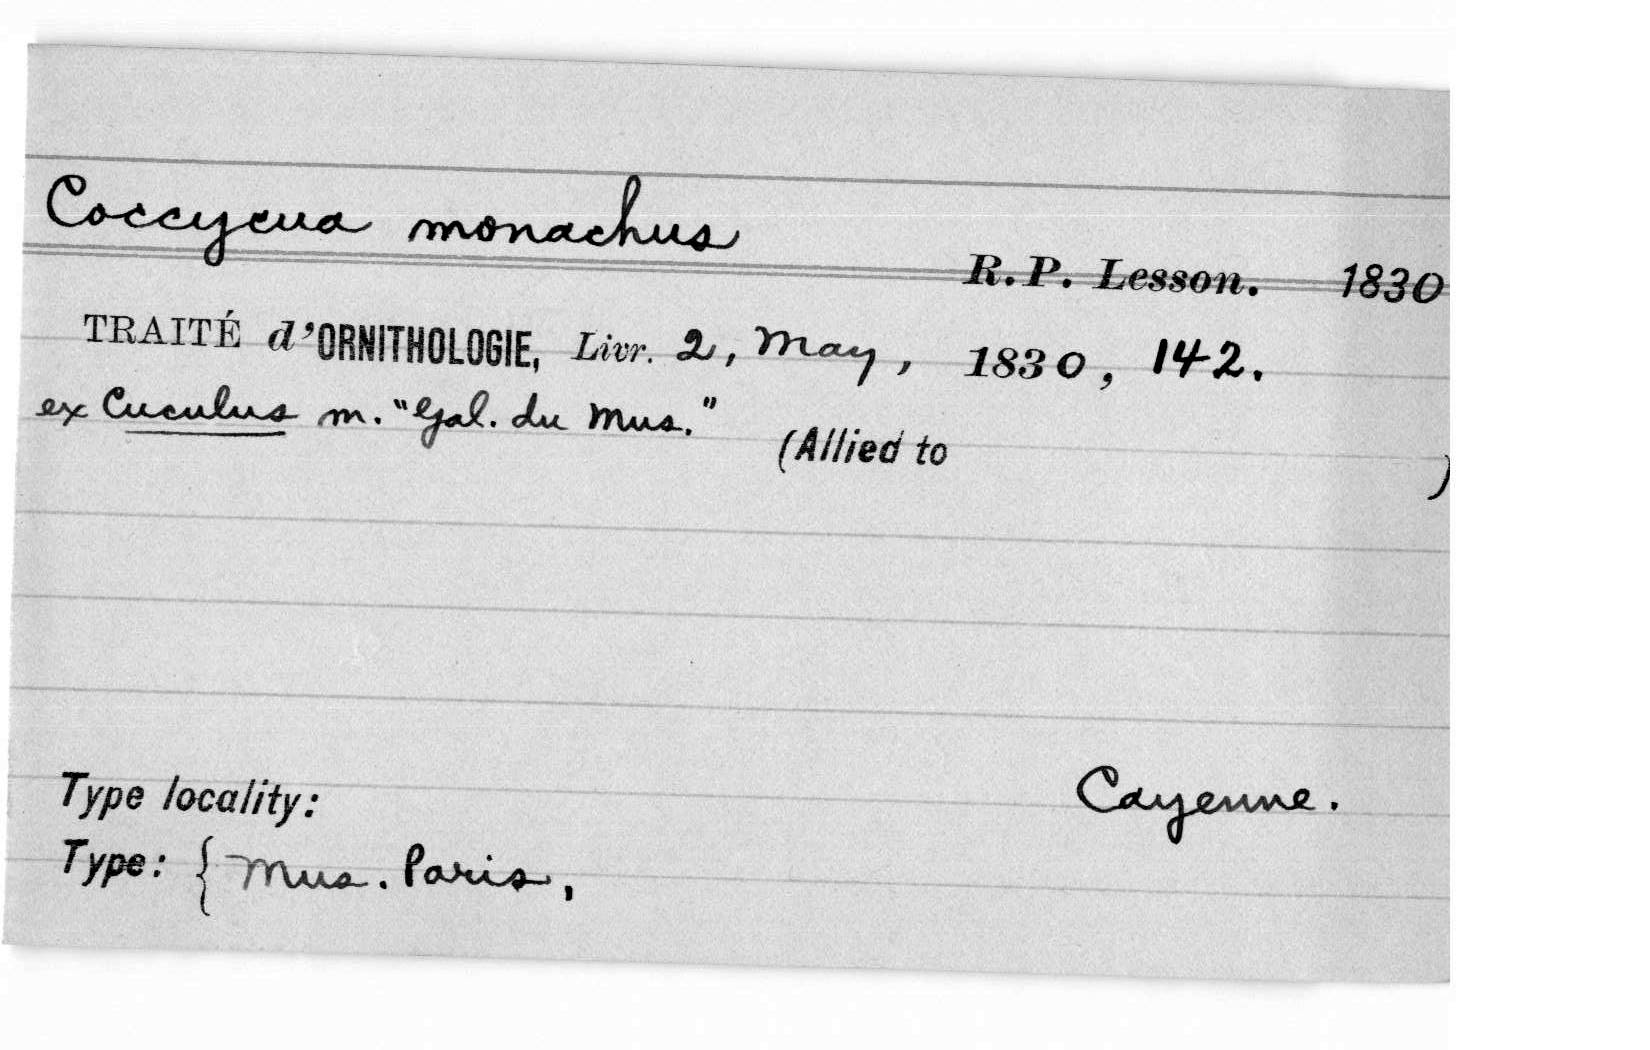 Coccycua monachus
R.P. Lesson. 1830
TRAITÉ d'ORNITHOLOGIE, Livr. 2, May, 1830, 142.
ex Cuculus m. "Gal. du Mus."
(Allied to )
Type locality: Cayenne.
Type: { Mus. Paris,